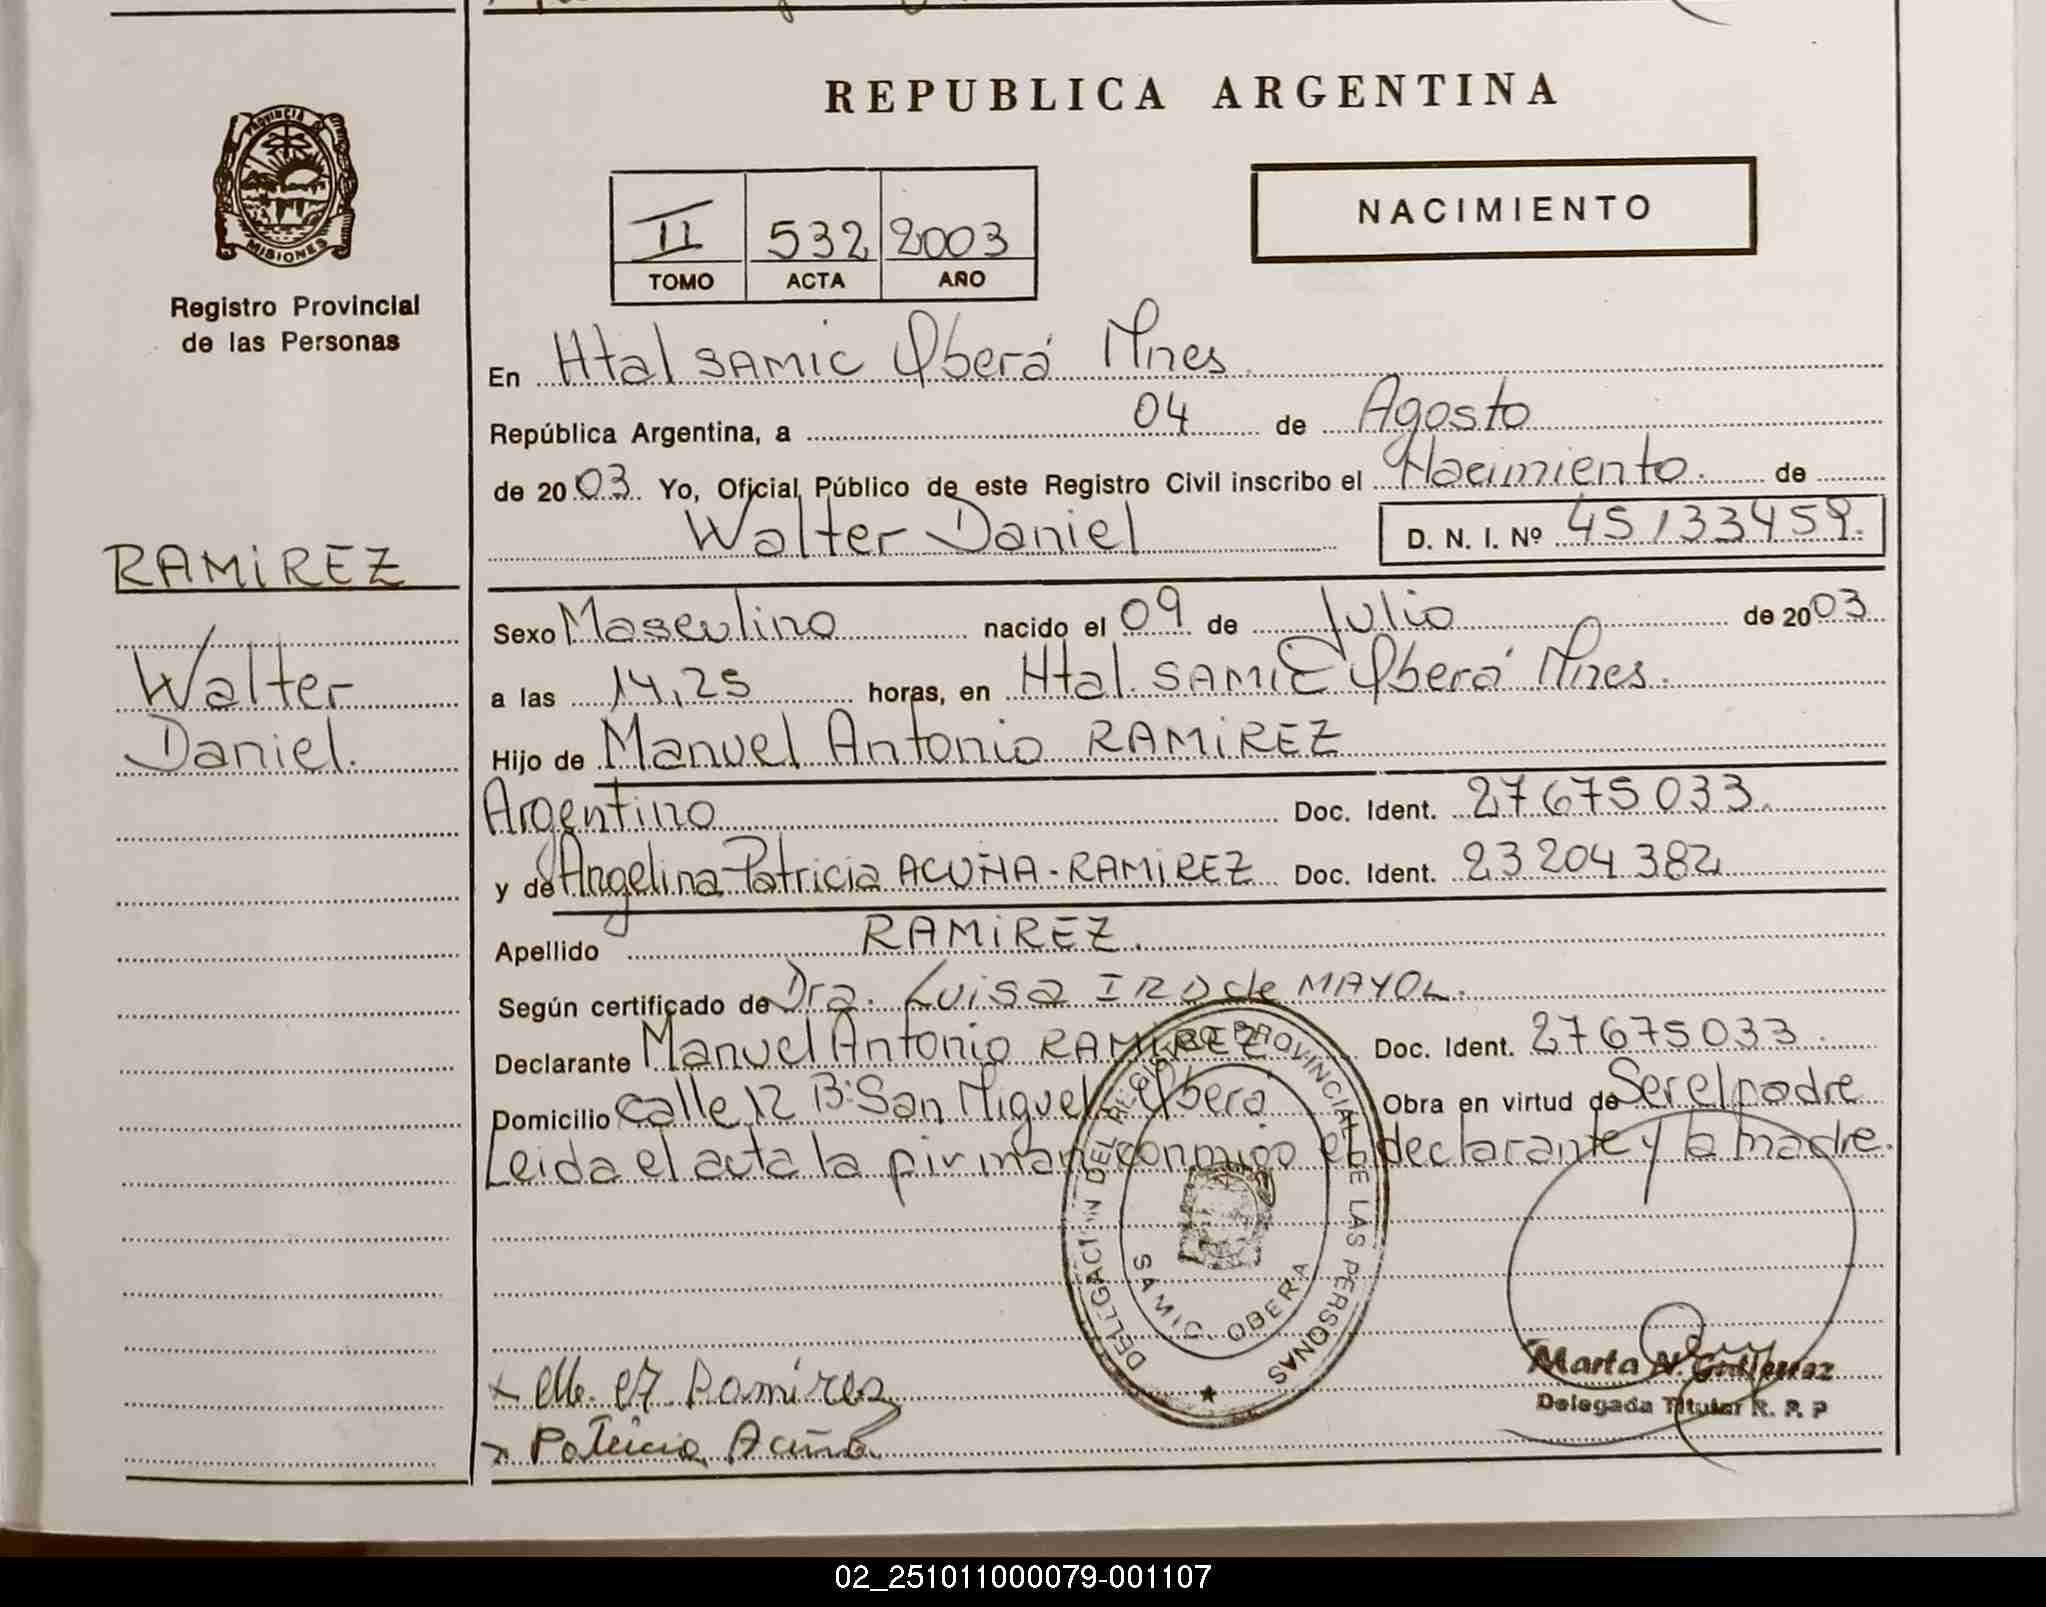 REPUBLICA ARGENTINA
PROVINCIA DE
MISIONES
Registro Provincial
de las Personas
II 532 2003
TOMO ACTA AÑO
NACIMIENTO
En Htal SAMIC Oberá Mnes
República Argentina, a 04 de Agosto
de 2003 Yo, Oficial Público de este Registro Civil inscribo el Nacimiento. de
Walter Daniel D. N. I. Nº 45133459.
RAMIREZ
Walter
Daniel.
Sexo Masculino nacido el 09 de Julio de 2003
a las 14,25 horas, en Htal. SAMIC Oberá Mnes.
Hijo de Manuel Antonio RAMIREZ
Argentino Doc. Ident. 27675033.
y de Angelina Patricia ACUÑA-RAMIREZ Doc. Ident. 23204382
Apellido RAMIREZ.
Según certificado de Dra. Luisa IRO de MAYOL.
Declarante Manuel Antonio RAMIREZ Doc. Ident. 27675033.
Domicilio calle 12 B: San Miguel Oberá Obra en virtud de Ser el padre
Leida el acta la firman conmigo el declarante y la madre.
DELEGACION DEL REGISTRO PROVINCIAL DE LAS PERSONAS
SAMIC. OBERA
Ramirez
Patricia Acuña
Marta N. Gutierrez
Delegada Titular R. P. P
02_251011000079-001107